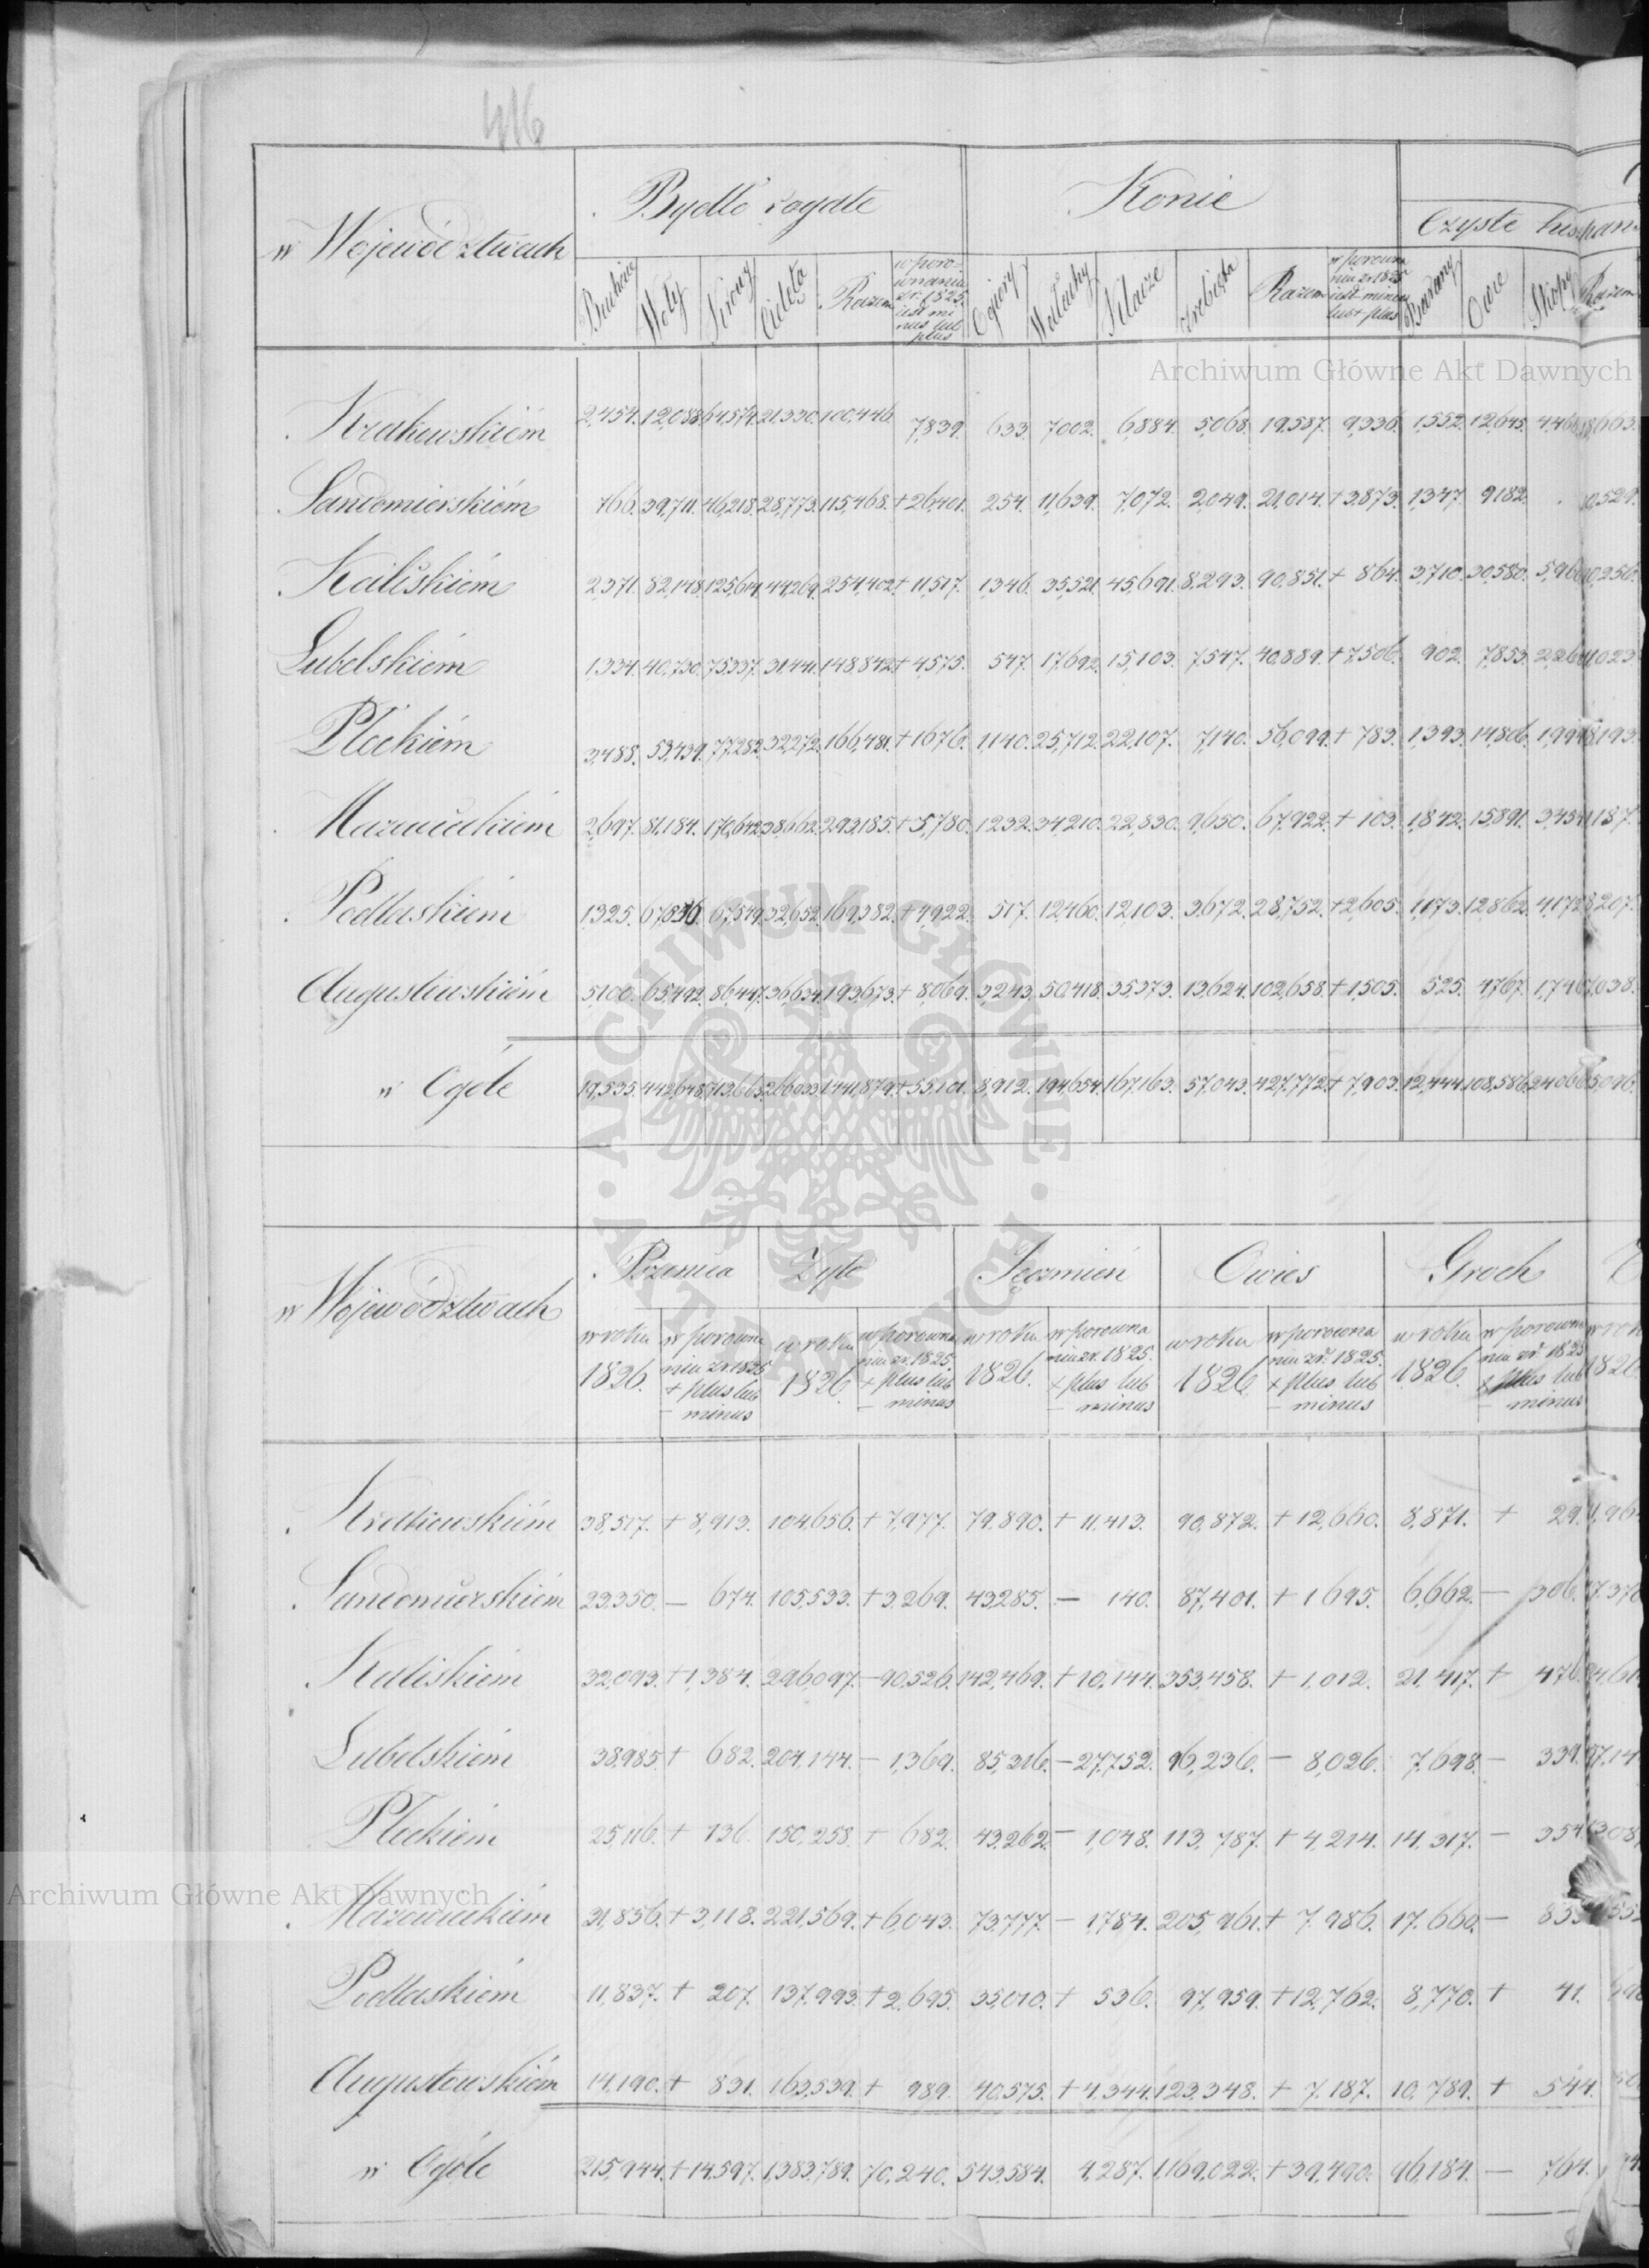 416
w Województwach
Bydło rogate
Konie
Czyste hiszpan
Buhaie Woły Krowy Cielęta Razem w porównaniu zr. 1825. iest minus lub plus Ogiery Wałachy Klacze Źrebięta Razem w porównaniu zr. 1825 iest minus lub + plus Barany Owce Skopy Razem
Krakowskiém 2,454. 12,088. 64,574. 21,330. 100,446. 7,839. 633. 7002. 6,884. 5,068. 19,587. 9,336. 1,552. 12,645. 4,466 18,663.
Sandomierskiém 766. 39,711. 46,218. 28,773. 115,468. + 26,401. 254. 11,639. 7,072. 2,049. 21,014. + 3,873. 1,347. 9,182. . 10,529.
Kaliskiém 2,371. 82,148. 125,614. 44,269. 254,402. + 11,517. 1,346. 35,521. 45,691. 8,293. 90,851. + 864. 3,710. 30,580. 5,966 40,256.
Lubelskiém 1,334. 40,730. 75,337. 31,441. 148,842. + 4,575. 547. 17,692. 15,103. 7,547. 40,889. + 7,506. 902. 7,853. 2,268 11,023
Płockiém 3,488. 53,439. 77,282. 32,272. 166,481. + 1676. 1,140. 25,712. 22,107. 7,140. 56,099. + 783. 1,393. 14,806. 1,994 18,193.
Mazowieckiém 2,697. 81,184. 170,642. 38,662. 293,185. + 5,780. 1232. 34,210. 22,830. 9,650. 67,922. + 103. 1,842. 15,891. 3,454 1187.
Podlaskiém 1,325. 67,856. 67,549. 32,652. 169,382. + 4,922. 517. 12,460. 12,103. 3,672. 28,752. + 2,605. 1,173. 12,862. 4,172 8,207.
Augustowskiém 5,100. 65,492. 86,447. 36,634. 193,673. + 8,069. 3,243. 50,418. 35,373. 13,624. 102,658. + 1,505. 525. 4,767. 1,746 7,038.
w Ogóle 19,535. 442,648. 713,663. 266,033. 1,441,879. + 55,101. 8,912. 194,654. 167,163. 57,043. 427,772. + 7,903. 12,444. 108,586. 24,066 5,096.
w Województwach
Pszenica Żyto Jęczmień Owies Groch
w roku 1826. w porównaniu zr 1825 + plus lub – minus w roku 1826. w porównaniu zr. 1825. + plus lub – minus w roku 1826. w porównaniu zr. 1825. + plus lub – minus w roku 1826 w porównaniu zr. 1825. + plus lub – minus w roku 1826. w porównaniu zr. 1825 + plus lub – minus w rok 1826
Krakowskiém 38,517. + 8,913. 104,656. + 7,977. 79,890. + 11,413. 90,872. + 12,660. 8,871. + 29.
Sandomierskiém 23,350. – 674. 105,533. + 3,269. 43,285. – 140. 87,401. + 1695. 6,662. – 306.
Kaliskiém 32,093. + 1,384. 296,097. – 90,526. 142,469. + 10,144. 353,458. + 1,012. 21,417. + 476
Lubelskiém 38,985. + 682. 204,144. – 1,369. 85,316. – 27,752. 96,236. – 8,026. 7,698. – 339.
Płockiém 25,116. + 136. 150,258. + 682. 43,262. – 1,048. 113,787. + 4,214. 14,317. – 354.
Mazowieckiém 31,856. + 3,118. 221,569. + 6,043. 73,777. – 1,784. 205,961. + 7,986. 17,660. – 855
Podlaskiém 11,837. + 207. 137,993. + 2,695. 35,010. + 536. 97,959. + 12,762. 8,770. + 41.
Augustowskiém 14,190. + 831. 163,539. + 989. 40,575. + 4,344. 123,348. + 7,187. 10,789. + 544.
w Ogóle 215,944. + 14,597. 1,383,789. 70,240. 543,584. 4,287. 1,169,022. + 39,490. 96,184. – 764.
Archiwum Główne Akt Dawnych
Archiwum Główne Akt Dawnych
· ARCHIWUM GŁÓWNE · AKT DAWNYCH